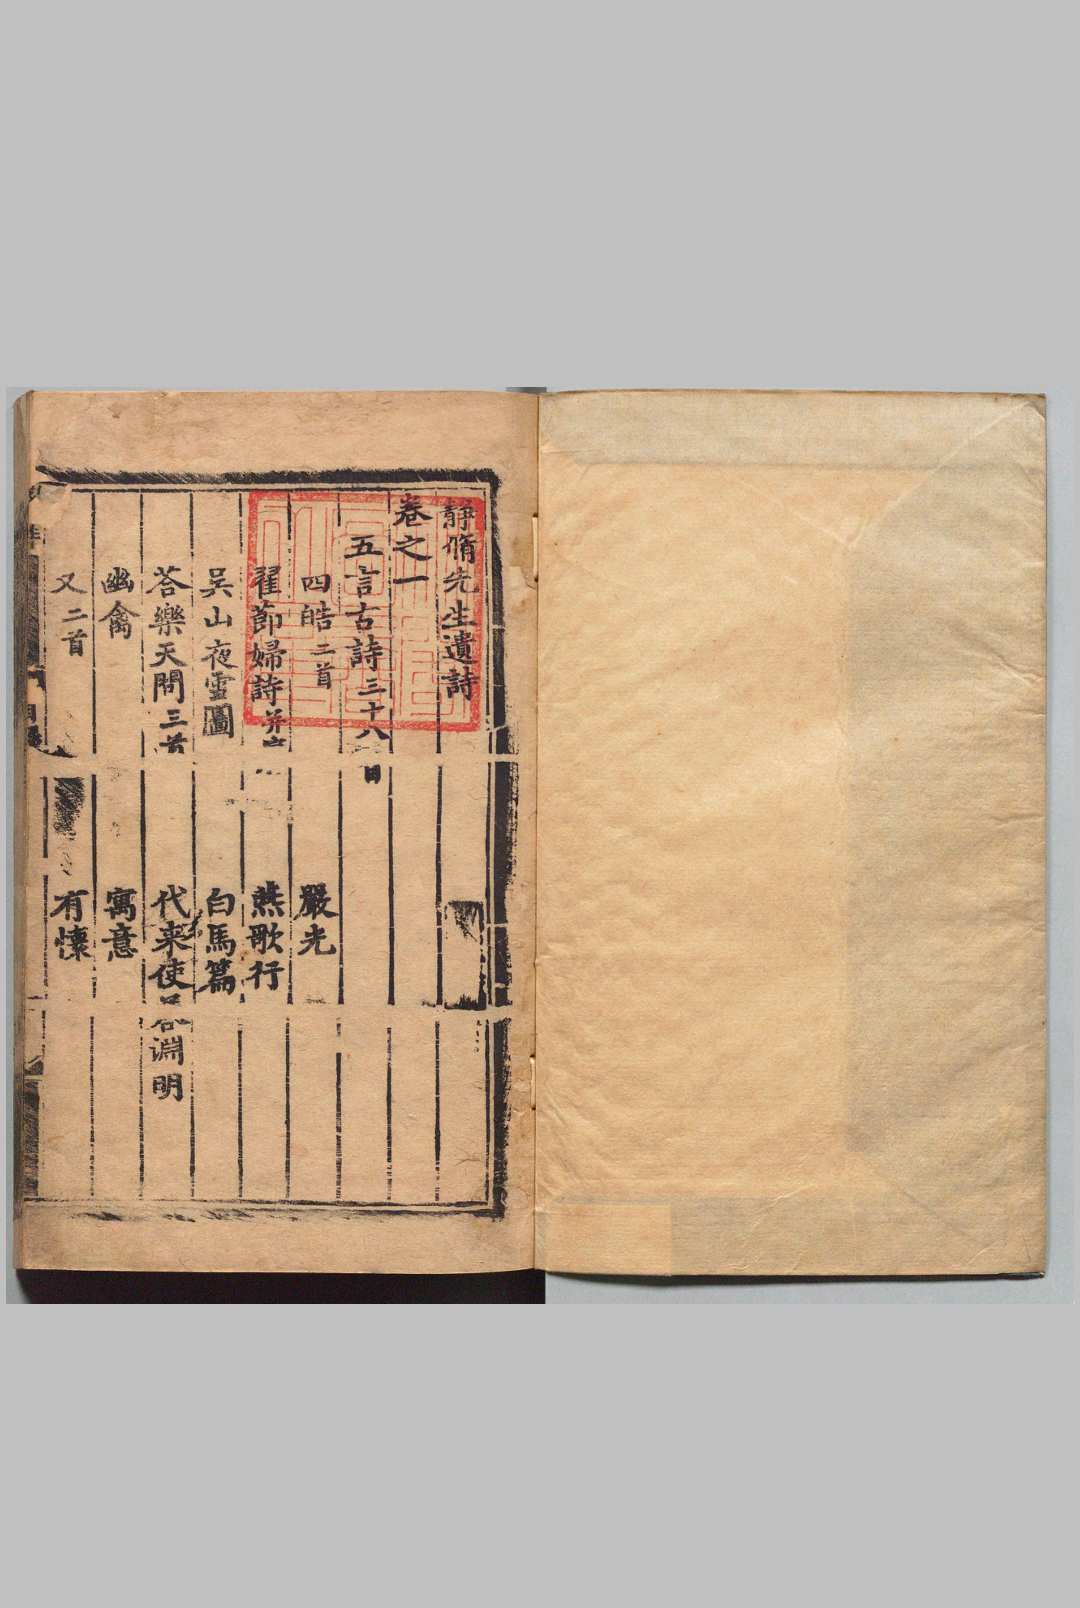 靜脩先生遺詩
卷之一
五言古詩三十八首
四皓二首 嚴光
翟節婦詩并序 燕歌行
吳山夜雪圖 白馬篇
荅樂天問三首 代來使荅淵明
幽禽 寓意
又二首 有懷